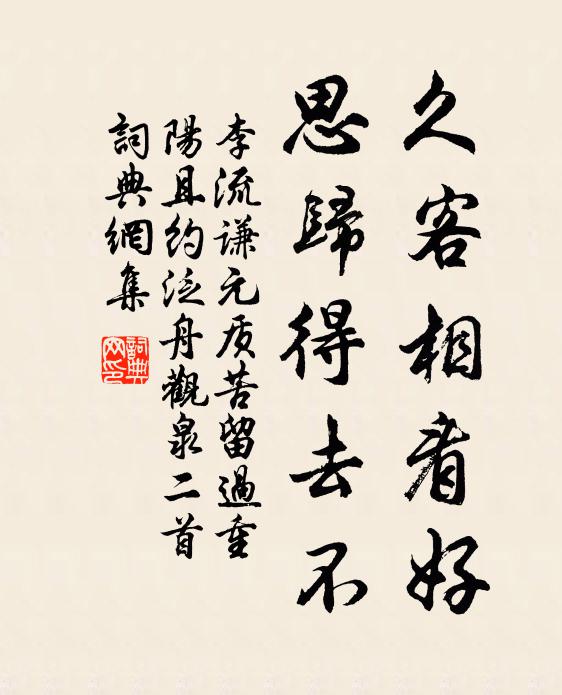 久客相看好
思歸得去不
李流谦元质苦留過重
陽且約泛舟觀泉二首
詞典網集
詞典網印